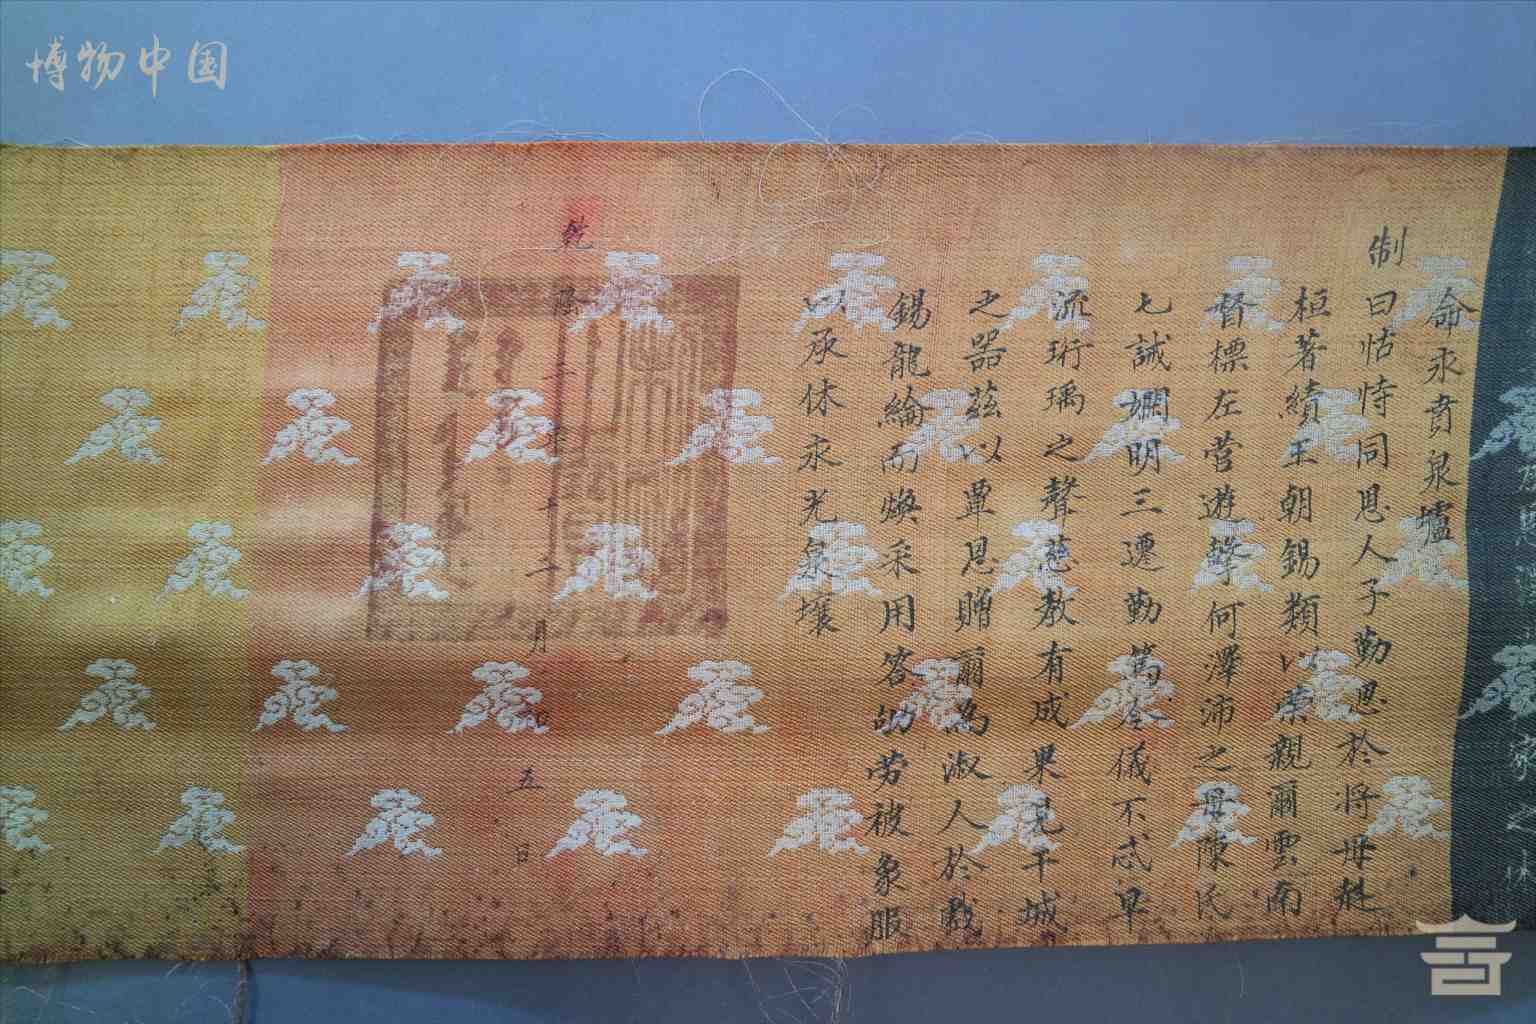 博物中国
命永賁泉壚
制曰怙恃同恩人子勤思於將母赳
桓著績王朝錫類以榮親爾雲南
督標左營遊擊何澤沛之母陳氏
七誡嫻明三遷勤篤令儀不忒早
流珩瑀之聲慈教有成果見干城
之器茲以覃恩贈爾為淑人於戲
錫龍綸而煥采用答劬勞被象服
以承休永光泉壤
乾隆年十二月五日